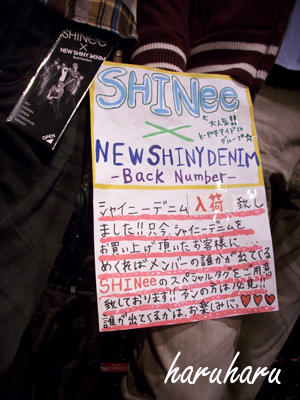 SHINee
×
NEW SHINY DENIM
Back Number
OPEN
SHINee
×
大人気!!
K-POPアイドル
グループ☆
NEW SHINY DENIM
-Back Number-
シャイニーデニム 入荷 致し
ました!!只今、シャイニーデニムを
お買い上げ頂いたお客様に
めくればメンバーの誰かが出てくる
SHINeeのスペシャルタグとご用意
致しております!!ファンの方は必見!!
誰が出てくるかは、お楽しみに、♥♥♥
haruharu